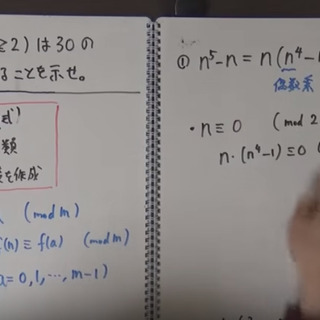 ≧2)は30の
ることを示せ。
式)
類
を作成
(mod m)
f(n) ≡ f(a) (mod m)
a=0,1,…,m-1)
① n⁵-n = n(n⁴-1
偶数系
・n≡0 (mod 2
n・(n⁴-1)≡0 (